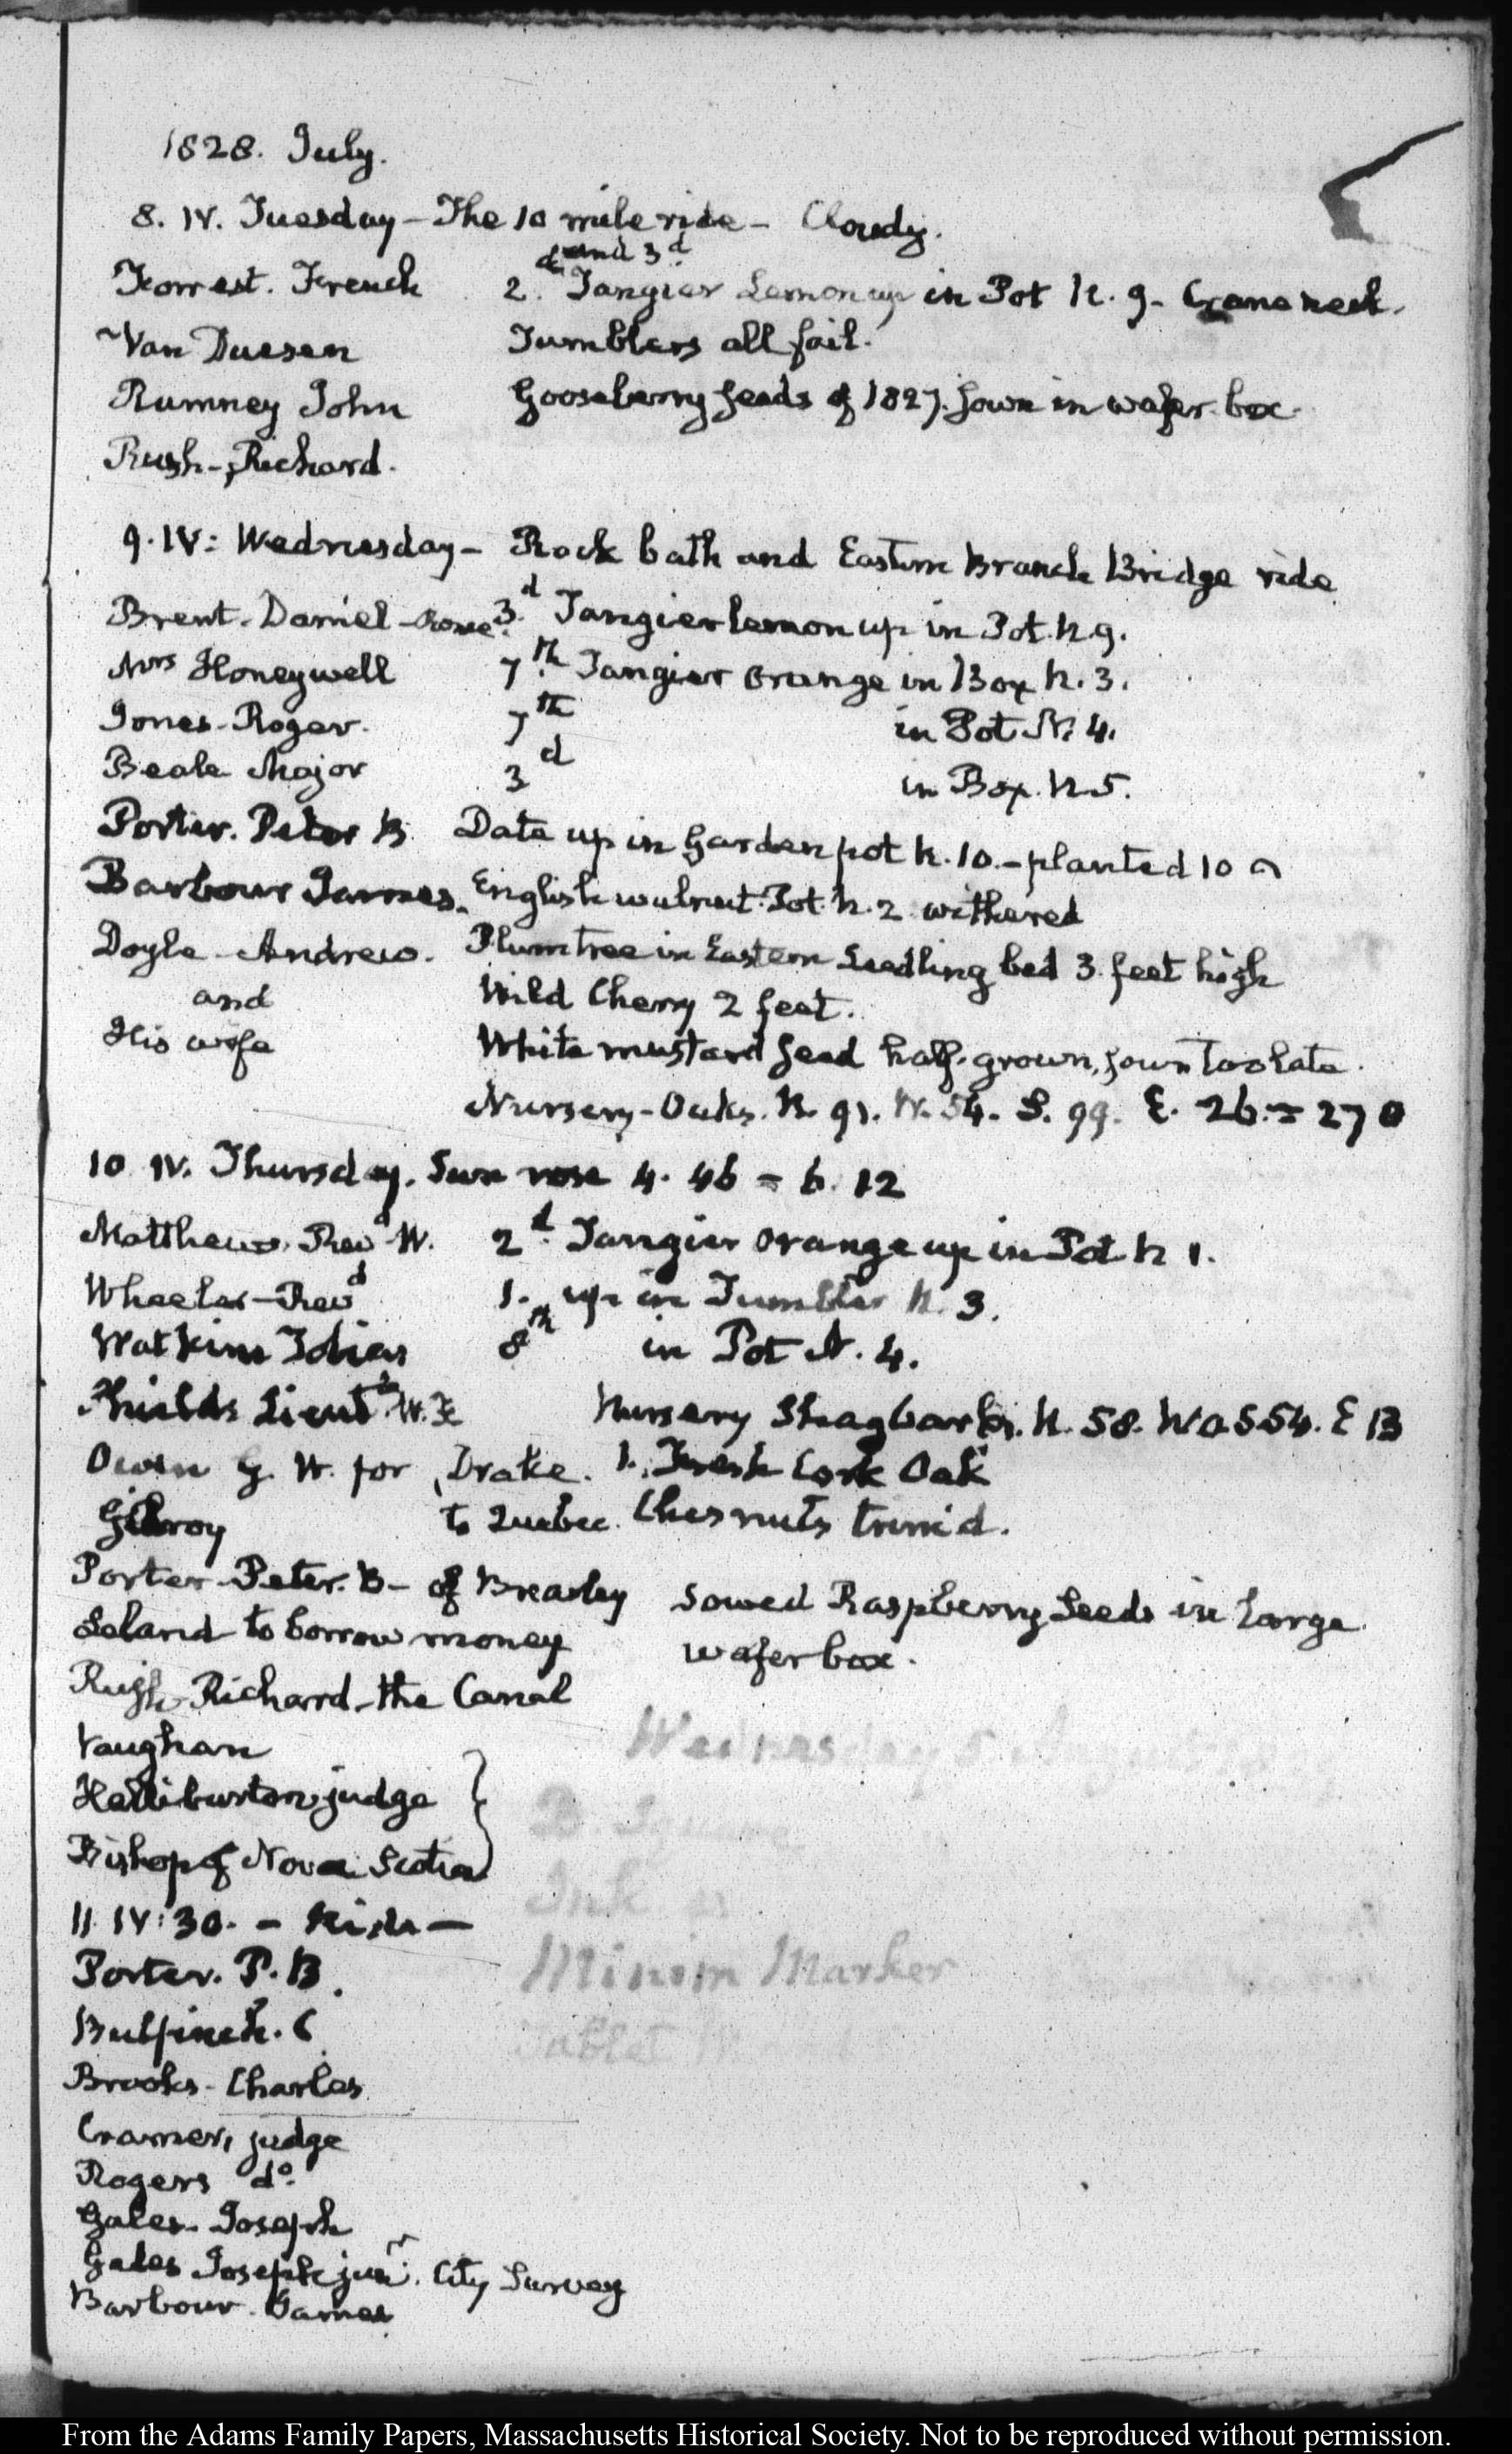 1828. July.
8. IV. Tuesday – The 10 mile ride – Cloudy.
Forrest. French
2.d and 3.d Tangier Lemon up in Pot N. 9 – Crane neck.
Van Deusen
Tumblers all fail.
Rumney John
Gooseberry seeds of 1827. sown in wafer box.
Rush – Richard.
9. IV: Wednesday – Rock bath and Eastern Branch Bridge ride
Brent. Daniel – 3.d Tangier lemon up in Pot. N 9.
Mrs Honeywell
7.th Tangier orange in Box N. 3.
Jones – Roger.
7th in Pot N. 4.
Beale Major
3d in Box. N 5.
Porter. Peter B. Date up in Garden pot N. 10. – planted 10
Barbour James. English walnut. Pot. N. 2 withered
Doyle – Andrew. Plum tree in Eastern Seedling bed 3 feet high
and
Wild Cherry 2 feet.
His wife
White mustard seed half-grown, sown too late.
Nursery – Oaks. N. 91. W. 54. S. 99. E. 26. = 270
10 IV. Thursday. Sun rose 4. 46 = 6. 12
Matthews. Revd W.
2d. Tangier orange up in Pot N 1.
Wheeler – Revd
1. up in Tumbler N. 3.
Watkins Tobias
8th in Pot N. 4.
Shields Lieut.t W. F.
Nursery Shagbarks. N. 58. W 0. S 54. E 13
Owen G. W. for Drake. 1. Fresh Cork Oak
Gilroy to Quebec. Chesnuts trim'd.
Porter – Peter. B – of Brearley
Sowed Raspberry Seeds in large
Leland to borrow money
wafer box.
Rush – Richard – the Canal
Vaughan
Halliburton judge
Bishop of Nova Scotia
11. IV: 30. – Ride –
Porter. P. B.
Bulfinch. C
Brooks – Charles
Cramer, judge
Rogers do.
Gales – Joseph
Gales Joseph junr. City Survey
Barbour. James
Minim Marker
From the Adams Family Papers, Massachusetts Historical Society. Not to be reproduced without permission.